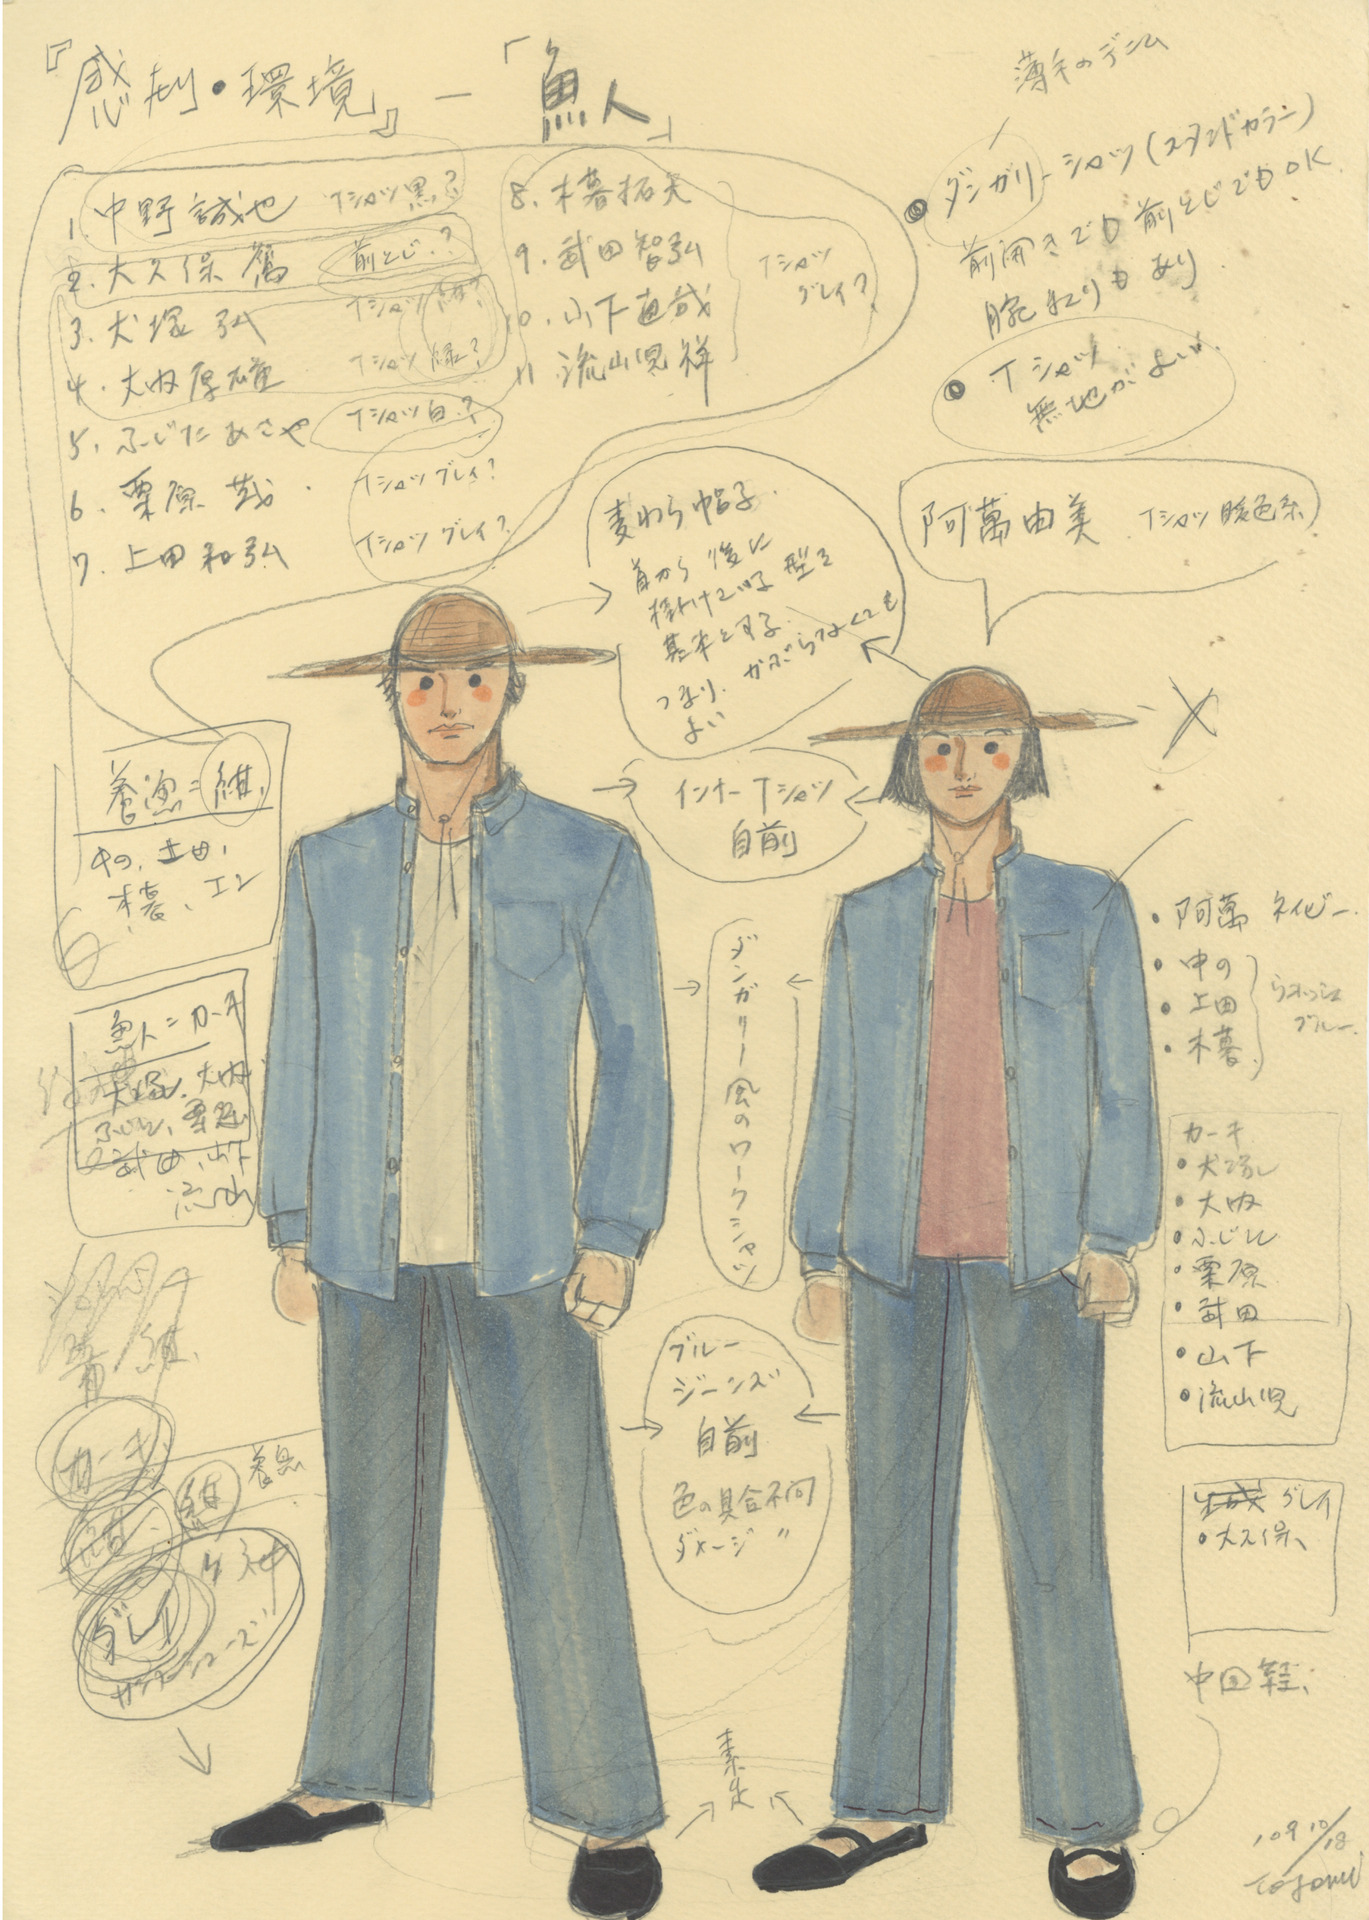 『感劇・環境』ー「魚人」
薄手のデニム
1. 中野誠也 Tシャツ黒?
2. 大久保鷹 前とじ?
3. 犬塚弘 Tシャツ紺?
4. 大内厚雄 Tシャツ緑?
5. ふじたあさや Tシャツ白?
6. 栗原茂 Tシャツグレイ?
7. 上田和弘 Tシャツグレイ?
8. 木暮拓矢
9. 武田智弘
10. 山下直哉
11. 流山児祥
Tシャツ
グレイ?
ダンガリーシャツ(スタンドカラー)
前開きでも前とじでもOK
腕まくりもあり
Tシャツ
無地がよい。
阿萬由美 Tシャツ暖色系
麦わら帽子.
首から後に
掛けている型を
基本とする.
つまり、かぶらなくても
よい
インナーTシャツ
自前
養漁=紺.
中の、上田、
木暮、
魚人=カーキ
犬塚、大内
ふじた、栗原
武田、山下
流山
ダンガリー風のワークシャツ
・阿萬 ネイビー.
・中の
・上田
・木暮.
ブルー.
カーキ
・犬塚
・大内
・ふじた
・栗原
・武田
・山下
・流山児
グレイ
・大久保、
ブルー
ジーンズ
自前
色の具合不問
ダメージ 〃
青 紺.
カーキ
紺
グレイ
素足
中国靴
'09 10/18